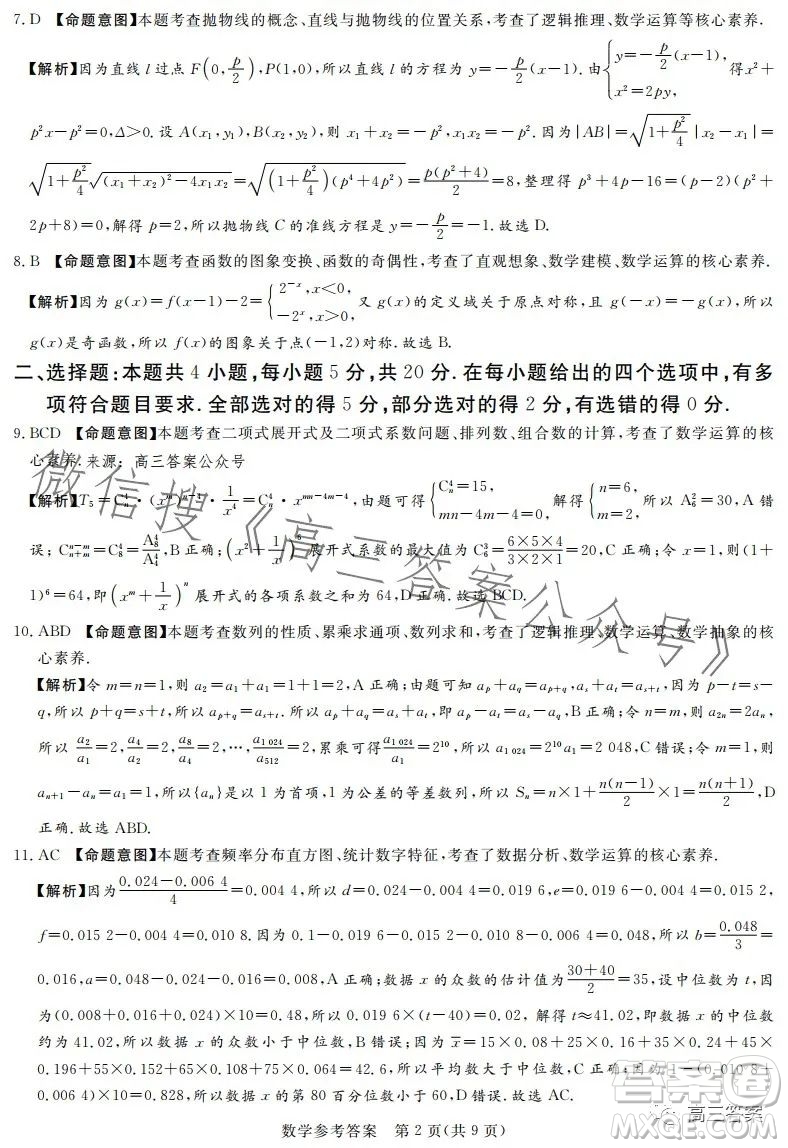 7. D 【命题意图】本题考查抛物线的概念、直线与抛物线的位置关系,考查了逻辑推理、数学运算等核心素养.
【解析】因为直线 l 过点 F(0, p/2),P(1,0),所以直线 l 的方程为 y=−p/2(x−1). 由{y=−p/2(x−1), x²=2py, 得 x²+
p²x−p²=0,Δ>0. 设 A(x₁,y₁),B(x₂,y₂),则 x₁+x₂=−p²,x₁x₂=−p². 因为|AB|=√(1+p²/4)|x₂−x₁|=
√(1+p²/4)√((x₁+x₂)²−4x₁x₂)=√((1+p²/4)(p⁴+4p²))=p(p²+4)/2=8,整理得 p³+4p−16=(p−2)(p²+
2p+8)=0,解得 p=2,所以抛物线 C 的准线方程是 y=−p/2=−1. 故选 D.
8. B 【命题意图】本题考查函数的图象变换、函数的奇偶性,考查了直观想象、数学建模、数学运算的核心素养.
【解析】因为 g(x)=f(x−1)−2={2⁻ˣ,x<0, −2ˣ,x>0, 又 g(x)的定义域关于原点对称,且 g(−x)=−g(x),所以
g(x)是奇函数,所以 f(x)的图象关于点(−1,2)对称. 故选 B.
二、选择题:本题共 4 小题,每小题 5 分,共 20 分. 在每小题给出的四个选项中,有多
项符合题目要求. 全部选对的得 5 分,部分选对的得 2 分,有选错的得 0 分.
9. BCD 【命题意图】本题考查二项式展开式及二项式系数问题、排列数、组合数的计算,考查了数学运算的核
心素养. 来源:高三答案公众号
【解析】T₅=C⁴ₙ·(xᵐ)ⁿ⁻⁴·1/x⁴=C⁴ₙ·xᵐⁿ⁻⁴ᵐ⁻⁴,由题可得{C⁴ₙ=15, mn−4m−4=0, 解得{n=6, m=2, 所以 A²₆=30,A 错
误;Cⁿ⁻ᵐₙ₊ₘ=C⁴₈=A⁴₈/A⁴₄,B 正确;(x²+1/x)⁶ 展开式系数的最大值为 C³₆=6×5×4/3×2×1=20,C 正确;令 x=1,则(1+
1)⁶=64,即(xᵐ+1/x)ⁿ 展开式的各项系数之和为 64,D 正确. 故选 BCD.
10. ABD 【命题意图】本题考查数列的性质、累乘求通项、数列求和,考查了逻辑推理、数学运算、数学抽象的核
心素养.
【解析】令 m=n=1,则 a₂=a₁+a₁=1+1=2,A 正确;由题可知 aₚ+a_q=aₚ₊q,aₛ+aₜ=aₛ₊ₜ,因为 p−t=s−
q,所以 p+q=s+t,所以 aₚ₊q=aₛ₊ₜ. 所以 aₚ+a_q=aₛ+aₜ,即 aₚ−aₜ=aₛ−a_q,B 正确;令 n=m,则 a₂ₙ=2aₙ,
所以 a₂/a₁=2,a₄/a₂=2,a₈/a₄=2,…,a₁ ₀₂₄/a₅₁₂=2,累乘可得 a₁ ₀₂₄/a₁=2¹⁰,所以 a₁ ₀₂₄=2¹⁰a₁=2 048,C 错误;令 m=1,则
aₙ₊₁−aₙ=a₁=1,所以{aₙ}是以 1 为首项,1 为公差的等差数列,所以 Sₙ=n×1+n(n−1)/2×1=n(n+1)/2,D
正确. 故选 ABD.
11. AC 【命题意图】本题考查频率分布直方图、统计数字特征,考查了数据分析、数学运算的核心素养.
【解析】因为 0.024−0.006 4/4=0.004 4,所以 d=0.024−0.004 4=0.019 6,e=0.019 6−0.004 4=0.015 2,
f=0.015 2−0.004 4=0.010 8. 因为 0.1−0.019 6−0.015 2−0.010 8−0.006 4=0.048,所以 b=0.048/3=
0.016,a=0.048−0.024−0.016=0.008,A 正确;数据 x 的众数的估计值为 30+40/2=35,设中位数为 t,因
为(0.008+0.016+0.024)×10=0.48,所以 0.019 6×(t−40)=0.02,解得 t≈41.02,即数据 x 的中位数
约为 41.02,所以数据 x 的众数小于中位数,B 错误;因为 x̄=15×0.08+25×0.16+35×0.24+45×
0.196+55×0.152+65×0.108+75×0.064=42.6,所以平均数大于中位数,C 正确;因为 1−(0.010 8+
0.006 4)×10=0.828,所以数据 x 的第 80 百分位数位于区间
数学参考答案 第 2 页(共 9 页)
微信搜《高三答案公众号》
高三答案
答案圈
MXQE.COM